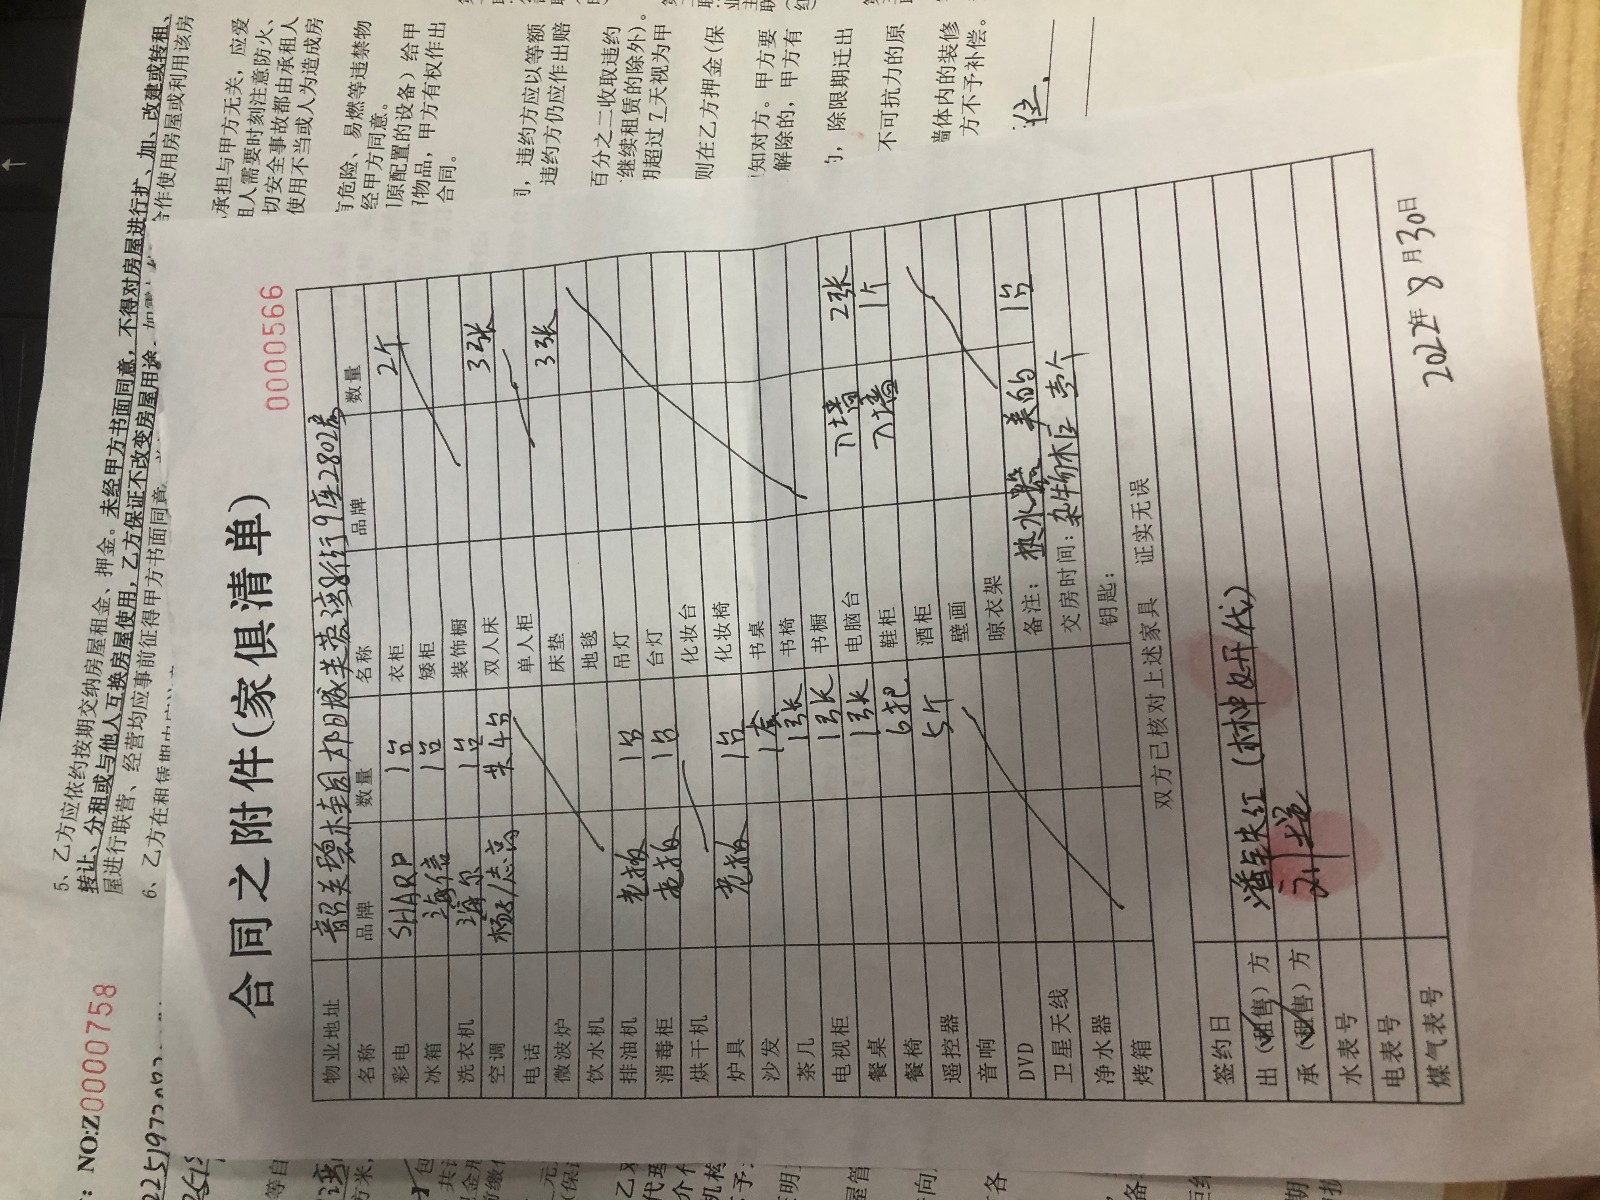 5、乙方应依约按期交纳房屋租金、押金。未经甲方书面同意，不得对房屋进行扩、加、改建或转租、
转让、分租或与他人互换房屋使用，乙方保证不改变房屋用途
屋进行联营、经营均应事前征得甲方书面同意
合作使用房屋或利用该房
6、乙方在租赁期内
承担与甲方无关，应爱
租人需要时刻注意防火、
切安全事故都由承租人
使用不当或人为造成房
有危险、易燃等违禁物
经甲方同意。
原配置的设备）给甲
物品，甲方有权作出
合同。
违约方应以等额
违约方仍应作出赔
百分之二收取违约
继续租赁的除外）。
期超过7天视为甲
则在乙方押金（保
知对方。甲方要
解除的，甲方有
，除限期迁出
不可抗力的原
墙体内的装修
方不予补偿。
NO:Z0000758
0000566
合同之附件(家俱清单)
物业地址 韶关碧桂园太阳城芙蓉湾8街9座2802房
名称 品牌 数量 名称 品牌 数量
彩电 SHARP 1台 衣柜 2个
冰箱 海信 1台 矮柜
洗衣机 海尔 1台 装饰橱
空调 杨子/志高 共4台 双人床 3张
电话 单人柜
微波炉 床垫 3张
饮水机 地毯
排油机 老板 1台 吊灯
消毒柜 老板 1台 台灯
烘干机 化妆台
炉具 老板 1台 化妆椅
沙发 1套 书桌
茶几 1张 书椅
电视柜 1张 书橱
餐桌 1张 电脑台 入墙 2张
餐椅 6把 鞋柜 入墙 1个
遥控器 5个 酒柜
音响 壁画
DVD 晾衣架
卫星天线 备注：热水器 美的 1台
净水器 交房时间：杂物柜 壹个
烤箱 钥匙：
双方已核对上述家具 证实无误
签约日
出（租售）方 (林中好代)
承（租售）方
水表号
电表号
煤气表号
2022年8月30日